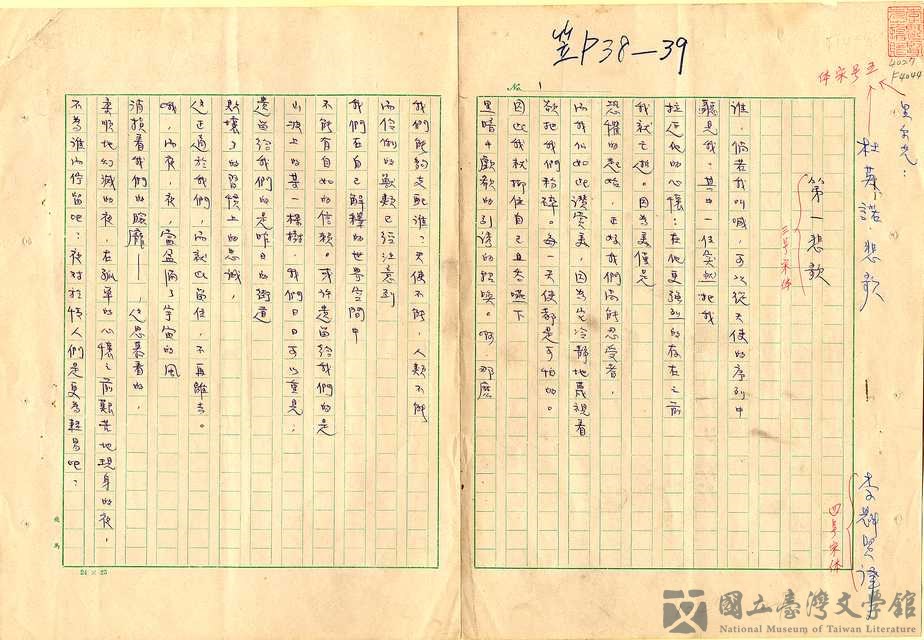 笠P38—39
No. 1
4027
P4044
五号宋体
里爾克:
杜英諾悲歌
李魁賢譯
四号宋体
第一悲歌
三号宋体
誰,倘若我叫喊,可以從天使的序列中
聽見我?其中一位突然把我
拉近他的心懷;在他更強烈的存在之前
我就亡逝。因為美僅是
恐懼的起始,正好我們尚能忍受者,
而我們如此讚賞美,因為它冷靜地蔑視著
欲把我們粉碎。每一天使都是可怕的。
因此我就抑住自己且吞嚥下
黑暗中歔欷的引誘的招喚。啊,那麼
我們能夠支配誰?天使不能,人類不能
而伶俐的獸類已經注意到
我們在自己解釋的世界空間中
不能有自如的信賴。或許遺留給我們的是
山坡上的某一棵樹,我們日日可以重見;
遺留給我們的是昨日的街道
與壞了的習慣上的忠誠,
它正適於我們,而就此留住,不再離去。
哦,而夜,夜,當盈滿了宇宙的風
消損著我們的臉龐——,它思慕著的,
柔順地幻滅的夜,在孤單的心懷之前艱苦地現身的夜,
不為誰而停留吧?夜對於情人們是更為輕易吧?
24×25
國立臺灣文學館
National Museum of Taiwan Literature